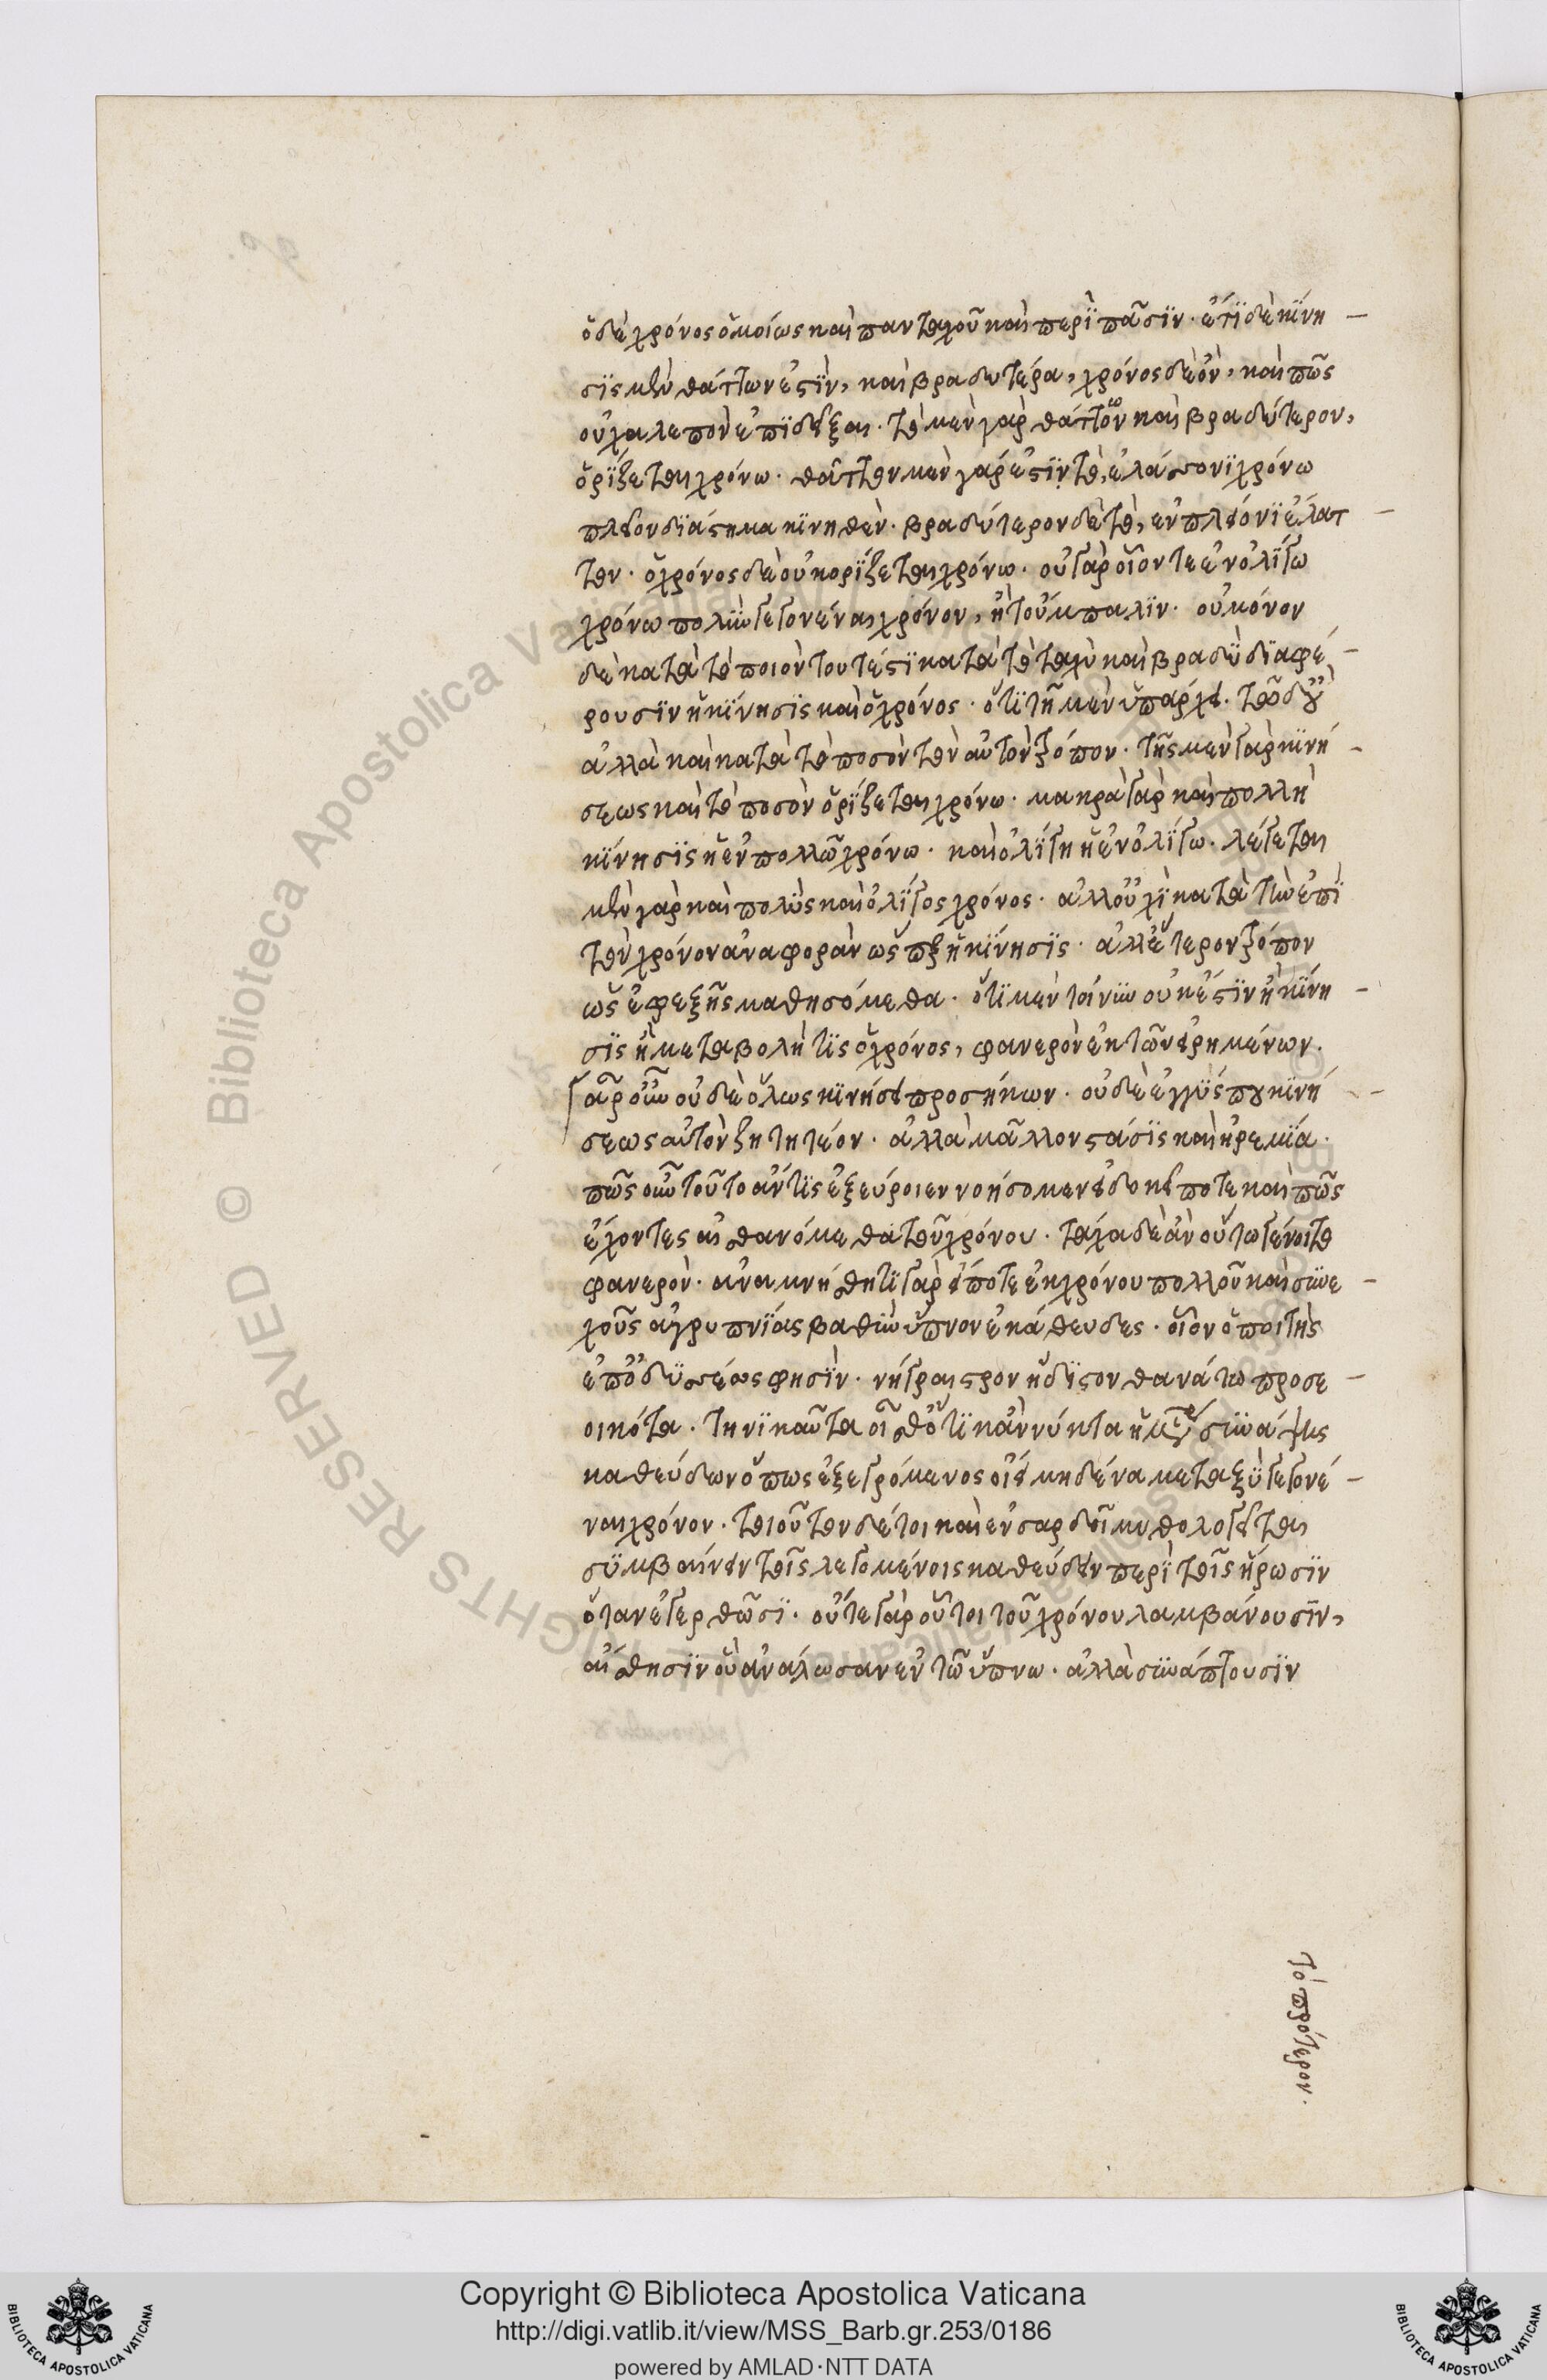 ὁ δὲ χρόνος ὁμοίως καὶ πανταχοῦ καὶ περὶ πᾶσιν. ἔτι δὲ κίνη
σις μὲν θάττων ἐστὶν, καὶ βραδυτέρα, χρόνος δὲ οὐ, καὶ πῶς
οὐ χαλεπὸν ἐπιδεῖξαι. τὸ μὲν γὰρ θᾶττον καὶ βραδύτερον,
ὁρίζεται χρόνω. θᾶττον μὲν γάρ ἐστιν τὸ, ἐλάσσονι χρόνω
πλεῖον διάστημα κινηθέν. βραδύτερον δὲ τὸ, ἐν πλείονι ἔλατ
τον. ὁ χρόνος δὲ οὐκ ὁρίζεται χρόνω. οὐ γὰρ οἷόν τε ἐν ὀλίγω
χρόνω πολὺν γεγονέναι χρόνον, ἢ τοὔμπαλιν. οὐ μόνον
δὲ κατὰ τὸ ποιὸν τουτέστι κατὰ τὸ ταχὺ καὶ βραδὺ διαφέ
ρουσιν ἡ κίνησις καὶ ὁ χρόνος. ὅτι τῆ μὲν ὑπάρχει. τῶ δ' οὔ
ἀλλὰ καὶ κατὰ τὸ ποσὸν τὸν αὐτὸν τρόπον. τῆς μὲν γὰρ κινή
σεως καὶ τὸ ποσὸν ὁρίζεται χρόνω. μακρὰ γὰρ καὶ πολλὴ
κίνησις ἡ ἐν πολλῶ χρόνω. καὶ ὀλίγη ἡ ἐν ὀλίγω. λέγεται
μὲν γὰρ καὶ πολὺς καὶ ὀλίγος χρόνος. ἀλλ' οὐχὶ κατὰ τὴν ἐπὶ
τὸν χρόνον ἀναφορὰν ὥσπερ ἡ κίνησις. ἀλλ' ἕτερον τρόπον
ὡς ἐφεξῆς μαθησόμεθα. ὅτι μὲν τοίνυν οὐκ ἔστιν ἢ κίνη
σις ἢ μεταβολή τις ὁ χρόνος, φανερὸν ἐκ τῶν εἰρημένων.
ἆρ' οὖν οὐδὲ ὅλως κινήσει προσήκων. οὐδὲ ἐγγύς που κινή
σεως αὐτὸν ζητητέον. ἀλλὰ μᾶλλον στάσις καὶ ἠρεμία.
πῶς οὖν τοῦτο ἄν τις ἐξεύροιεν νοήσομεν εἰ δοκεῖ ποτε καὶ πῶς
ἔχοντες αἰσθανόμεθα τοῦ χρόνου. τάχα δὲ ἂν οὕτω γένοιτο
φανερὸν. ἀναμνήσθητι γὰρ εἴ ποτε ἐκ χρόνου πολλοῦ καὶ συνε
χοῦς ἀγρυπνίας βαθὺν ὕπνον ἐκάθευδες. οἷον ὁ ποιητὴς
ἐπ' ὀδυσσέως φησὶν. νήγραιστρον ἥδιστον θανάτω προσε
οικότα. τηνικαῦτα οἶσθ' ὅτι κἂν νύκτα ἡμέρα συνάψῃς
καθεύδων ὅπως ἐξεγρόμενος οἴει μηδένα μεταξὺ γεγονέ
ναι χρόνον. τοιοῦτον δέ τοι καὶ ἐν σαρδοῖ μυθολογεῖται
συμβαίνειν τοῖς λεγομένοις καθεύδειν περὶ τοῖς ἥρωσιν
ὅταν ἐγερθῶσι. οὔτε γὰρ οὗτοι τοῦ χρόνου λαμβάνουσιν,
αἴσθησιν ὃν ἀνάλωσαν ἐν τῶ ὕπνω. ἀλλὰ συνάπτουσιν
τὸ πρότερον.
Copyright © Biblioteca Apostolica Vaticana
http://digi.vatlib.it/view/MSS_Barb.gr.253/0186
powered by AMLAD·NTT DATA
BIBLIOTECA APOSTOLICA VATICANA
BIBLIOTECA APOSTOLICA VATICANA